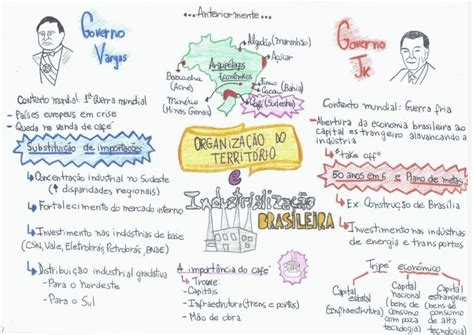 Governo
Vargas
Contexto mundial: 1ª Guerra mundial
- Países europeus em crise
- Queda na venda de café
Substituição de importações
Concentração industrial no Sudeste
(↑ disparidades regionais)
Fortalecimento do mercado interno
Investimento nas indústrias de base
(CSN, Vale, Eletrobrás, Petrobrás, BNDE)
Distribuição industrial gradativa
- Para o Nordeste
- Para o Sul
...Anteriormente...
Algodão (Maranhão)
Açúcar
Arquipélagos
Econômicos
Borracha
(Acre)
Fumo
Cacau
(Bahia)
Minério
(Minas Gerais)
Café (Sudeste)
ORGANIZAÇÃO DO
TERRITÓRIO
e
Industrialização
BRASILEIRA
A importância do café
Trouxe:
- Capitais
- Infraestrutura (trens e portos)
- Mão de obra
Governo
JK
Contexto mundial: Guerra fria
- Abertura da economia brasileira ao
capital estrangeiro alavancando a
indústria
"take off"
50 anos em 5 e Plano de metas
Ex: Construção de Brasília
Investimento nas indústrias
de energia e transportes
Tripé econômico
Capital
estatal
(Infraestrutura)
Capital
nacional
(bens de
consumo
com pouca
tecnologia)
Capital
estrangeiro
(bens de
consumo
de alta
tecnologia)